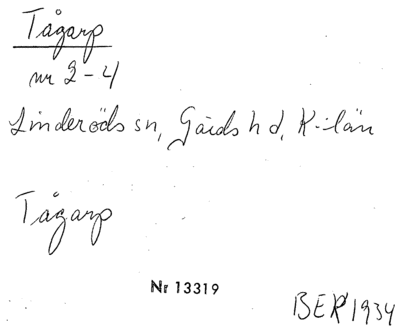 Tågarp
nr 2-4
Linderöds sn, Gärds hd, K-län
Tågarp
Nr 13319
BER 1934